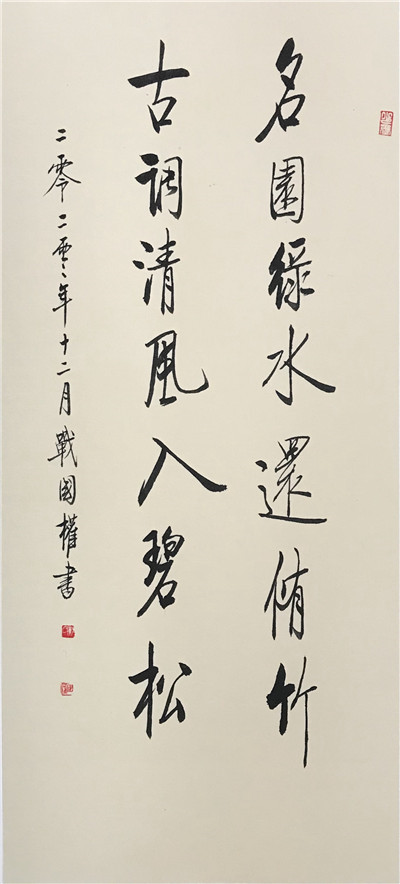 名園綠水還脩竹
古調清風入碧松
二零二零年十二月戰國權書